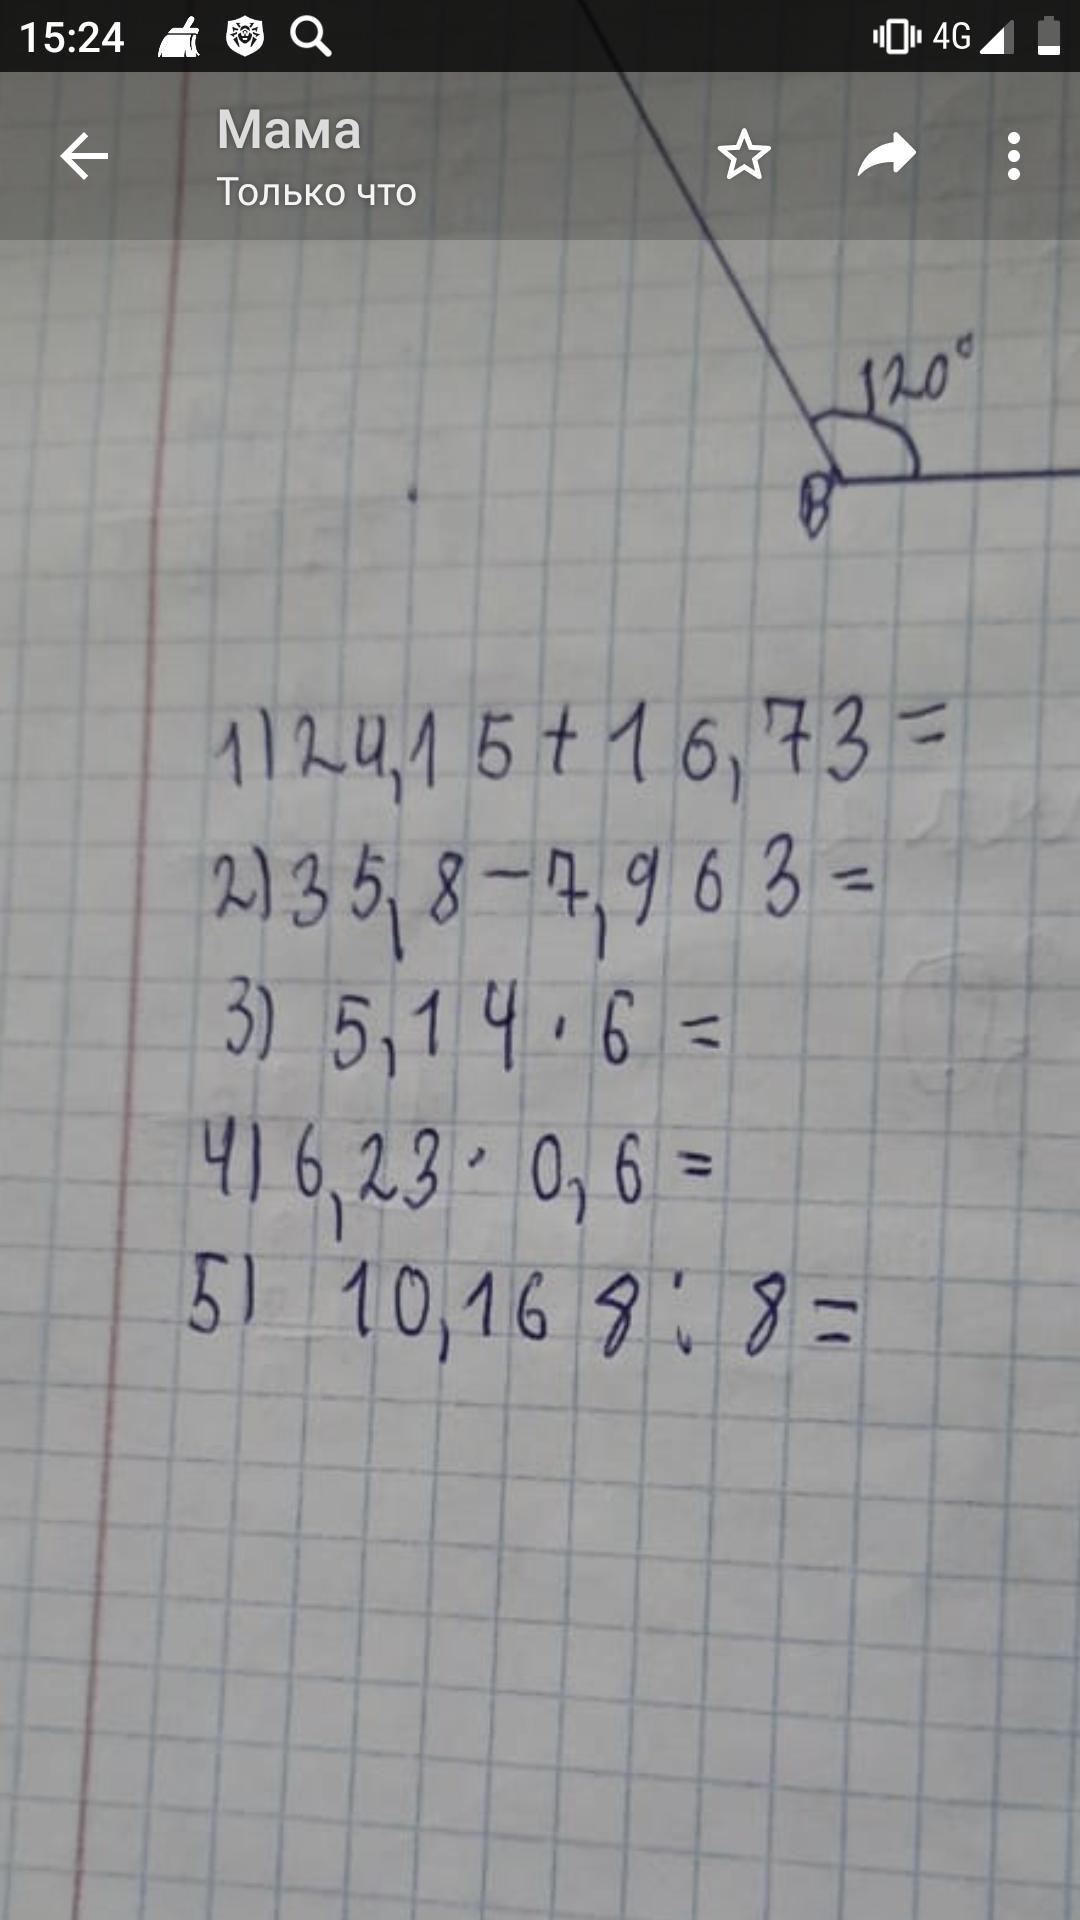 15:24
4G
Мама
Только что
120°
B
1) 24,15 + 16,73 =
2) 35,8 - 7,963 =
3) 5,14 · 6 =
4) 6,23 · 0,6 =
5) 10,168 : 8 =